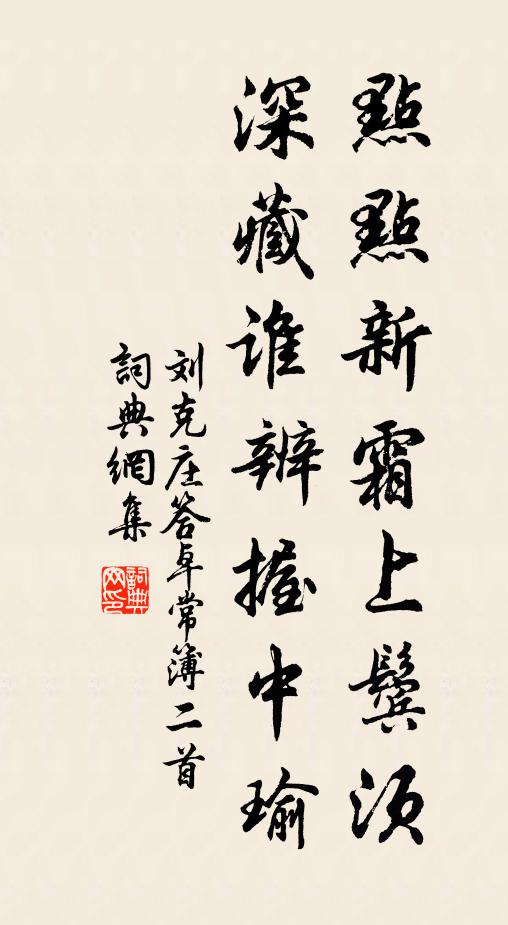 點點新霜上鬓须
深藏谁辨握中瑜
刘克庄答卓常簿二首
詞典網集
詞典
网印